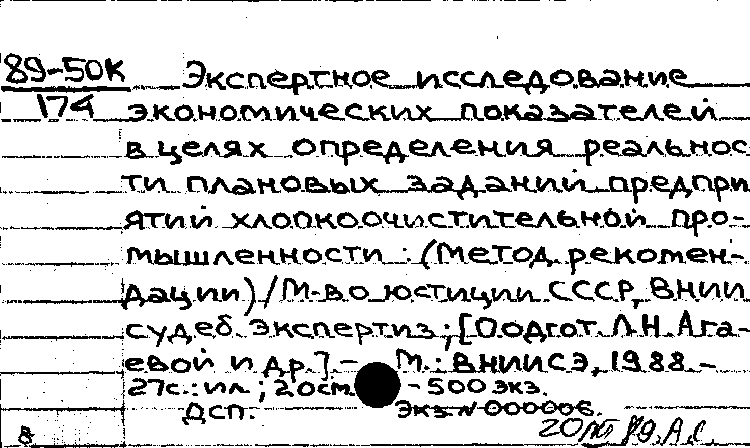 89-50К Экспертное исследование
174 экономических показателей
в целях определения реальнос
ти плановых заданий предпри
ятий хлопкоочистительной про-
мышленности : (Метод. рекомен-
дации) / М-во юстиции СССР, ВНИИ
судеб. экспертиз ; [Подгот. Л.Н. Ага-
евой и др.] - М. : ВНИИСЭ, 1988. -
27с. : ил ; 20см - 500 экз.
ДСП. Экз. N 000006.
8 20